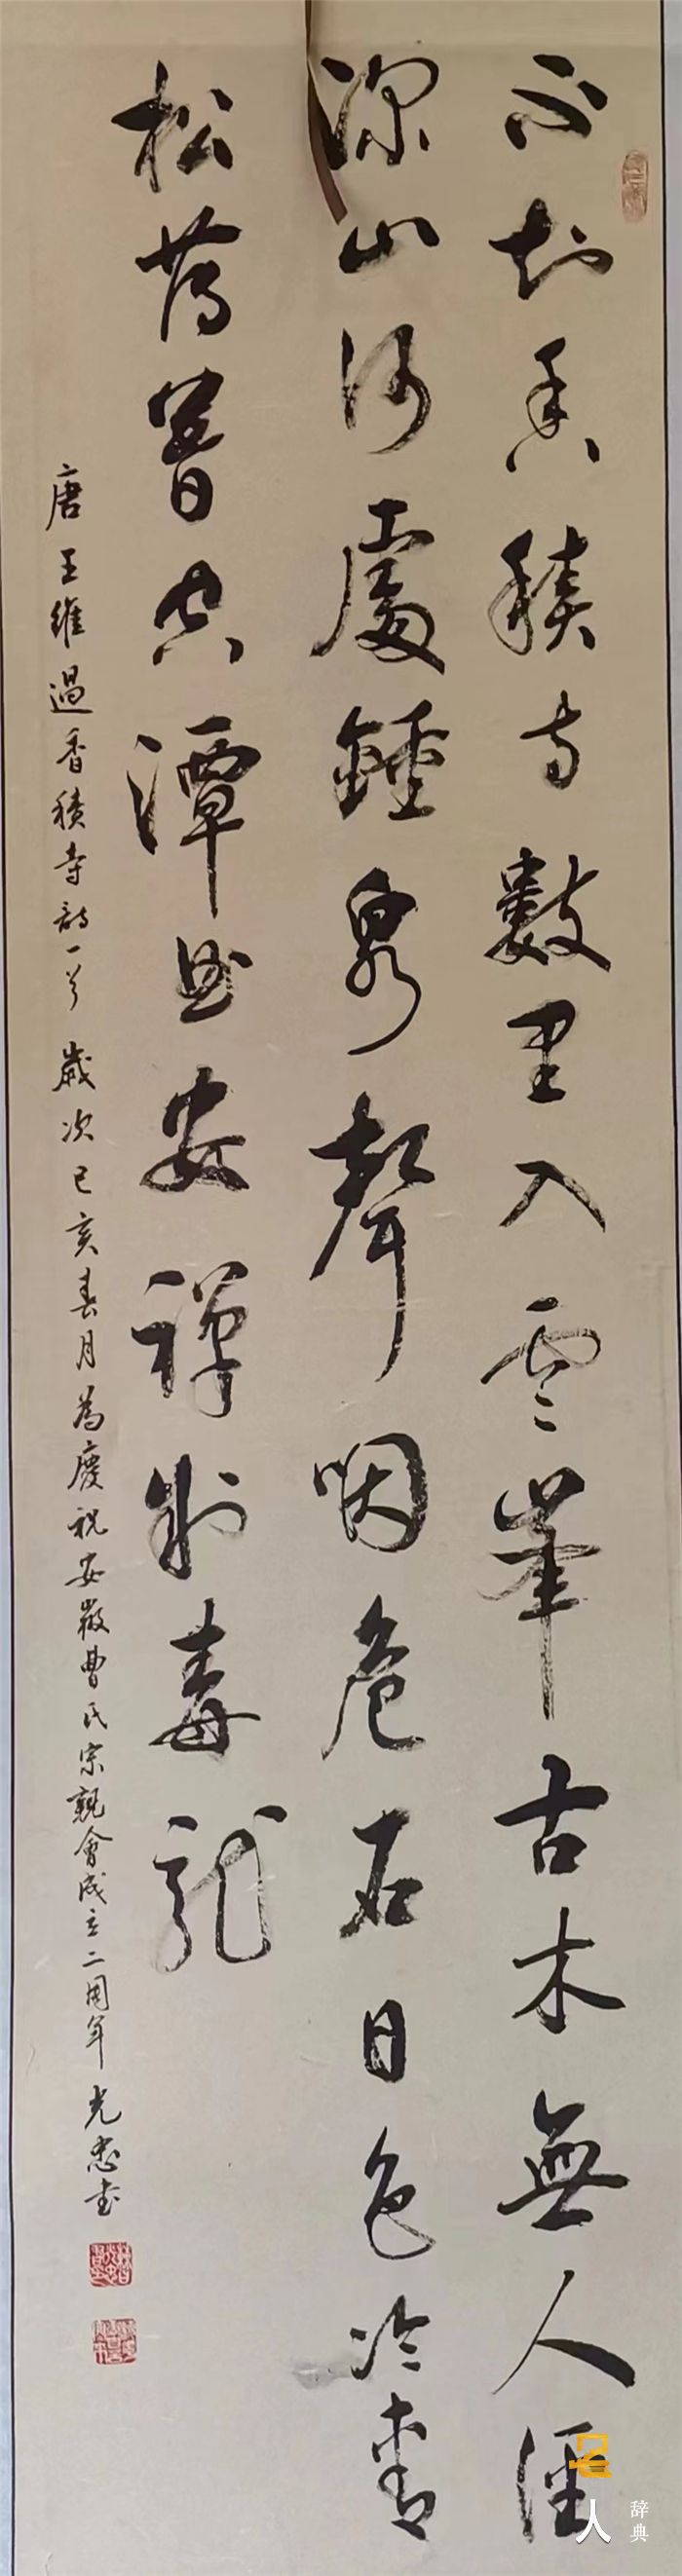 不知香積寺數里入雲峯古木無人徑
深山何處鐘泉聲咽危石日色冷青
松薄暮空潭曲安禪制毒龍
唐王維過香積寺詩一首 歲次己亥春月為慶祝安徽曹氏宗親會成立二周年 光忠書
人
辞典